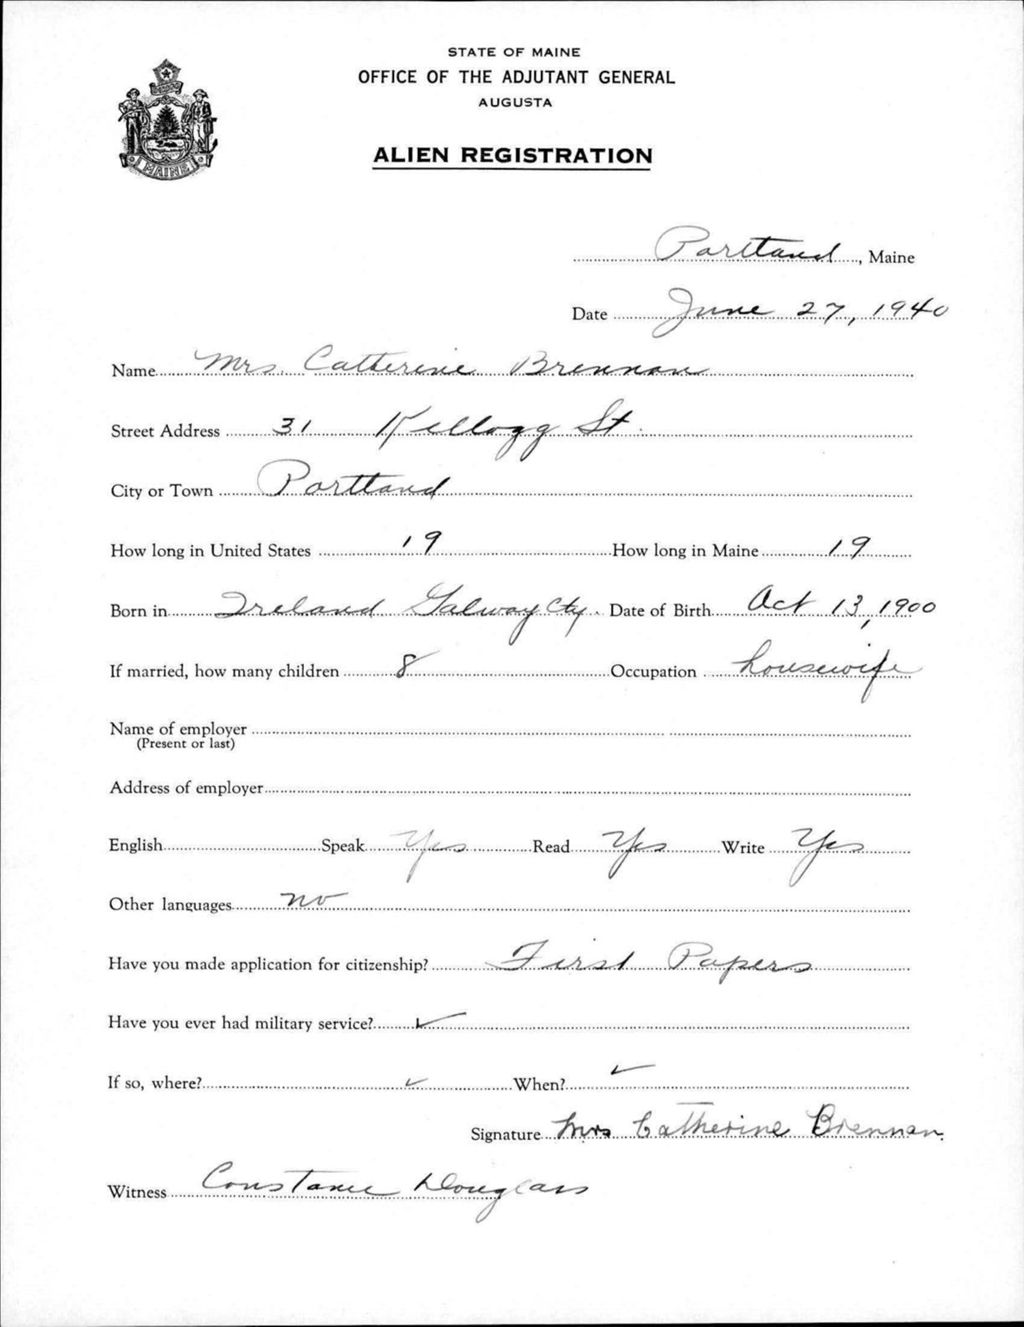 STATE OF MAINE
OFFICE OF THE ADJUTANT GENERAL
AUGUSTA
ALIEN REGISTRATION
MAINE
Portland, Maine
Date June 27, 1940
Name Mrs. Catherine Brennan
Street Address 31 Kellogg St.
City or Town Portland
How long in United States 19 How long in Maine 19
Born in Ireland Galway Cty. Date of Birth Oct 13, 1900
If married, how many children 8 Occupation housewife
Name of employer
(Present or last)
Address of employer
English Speak Yes Read Yes Write Yes
Other languages no
Have you made application for citizenship? First Papers
Have you ever had military service? ✓
If so, where? ✓ When? ✓
Signature Mrs Catherine Brennan.
Witness Constance Douglass